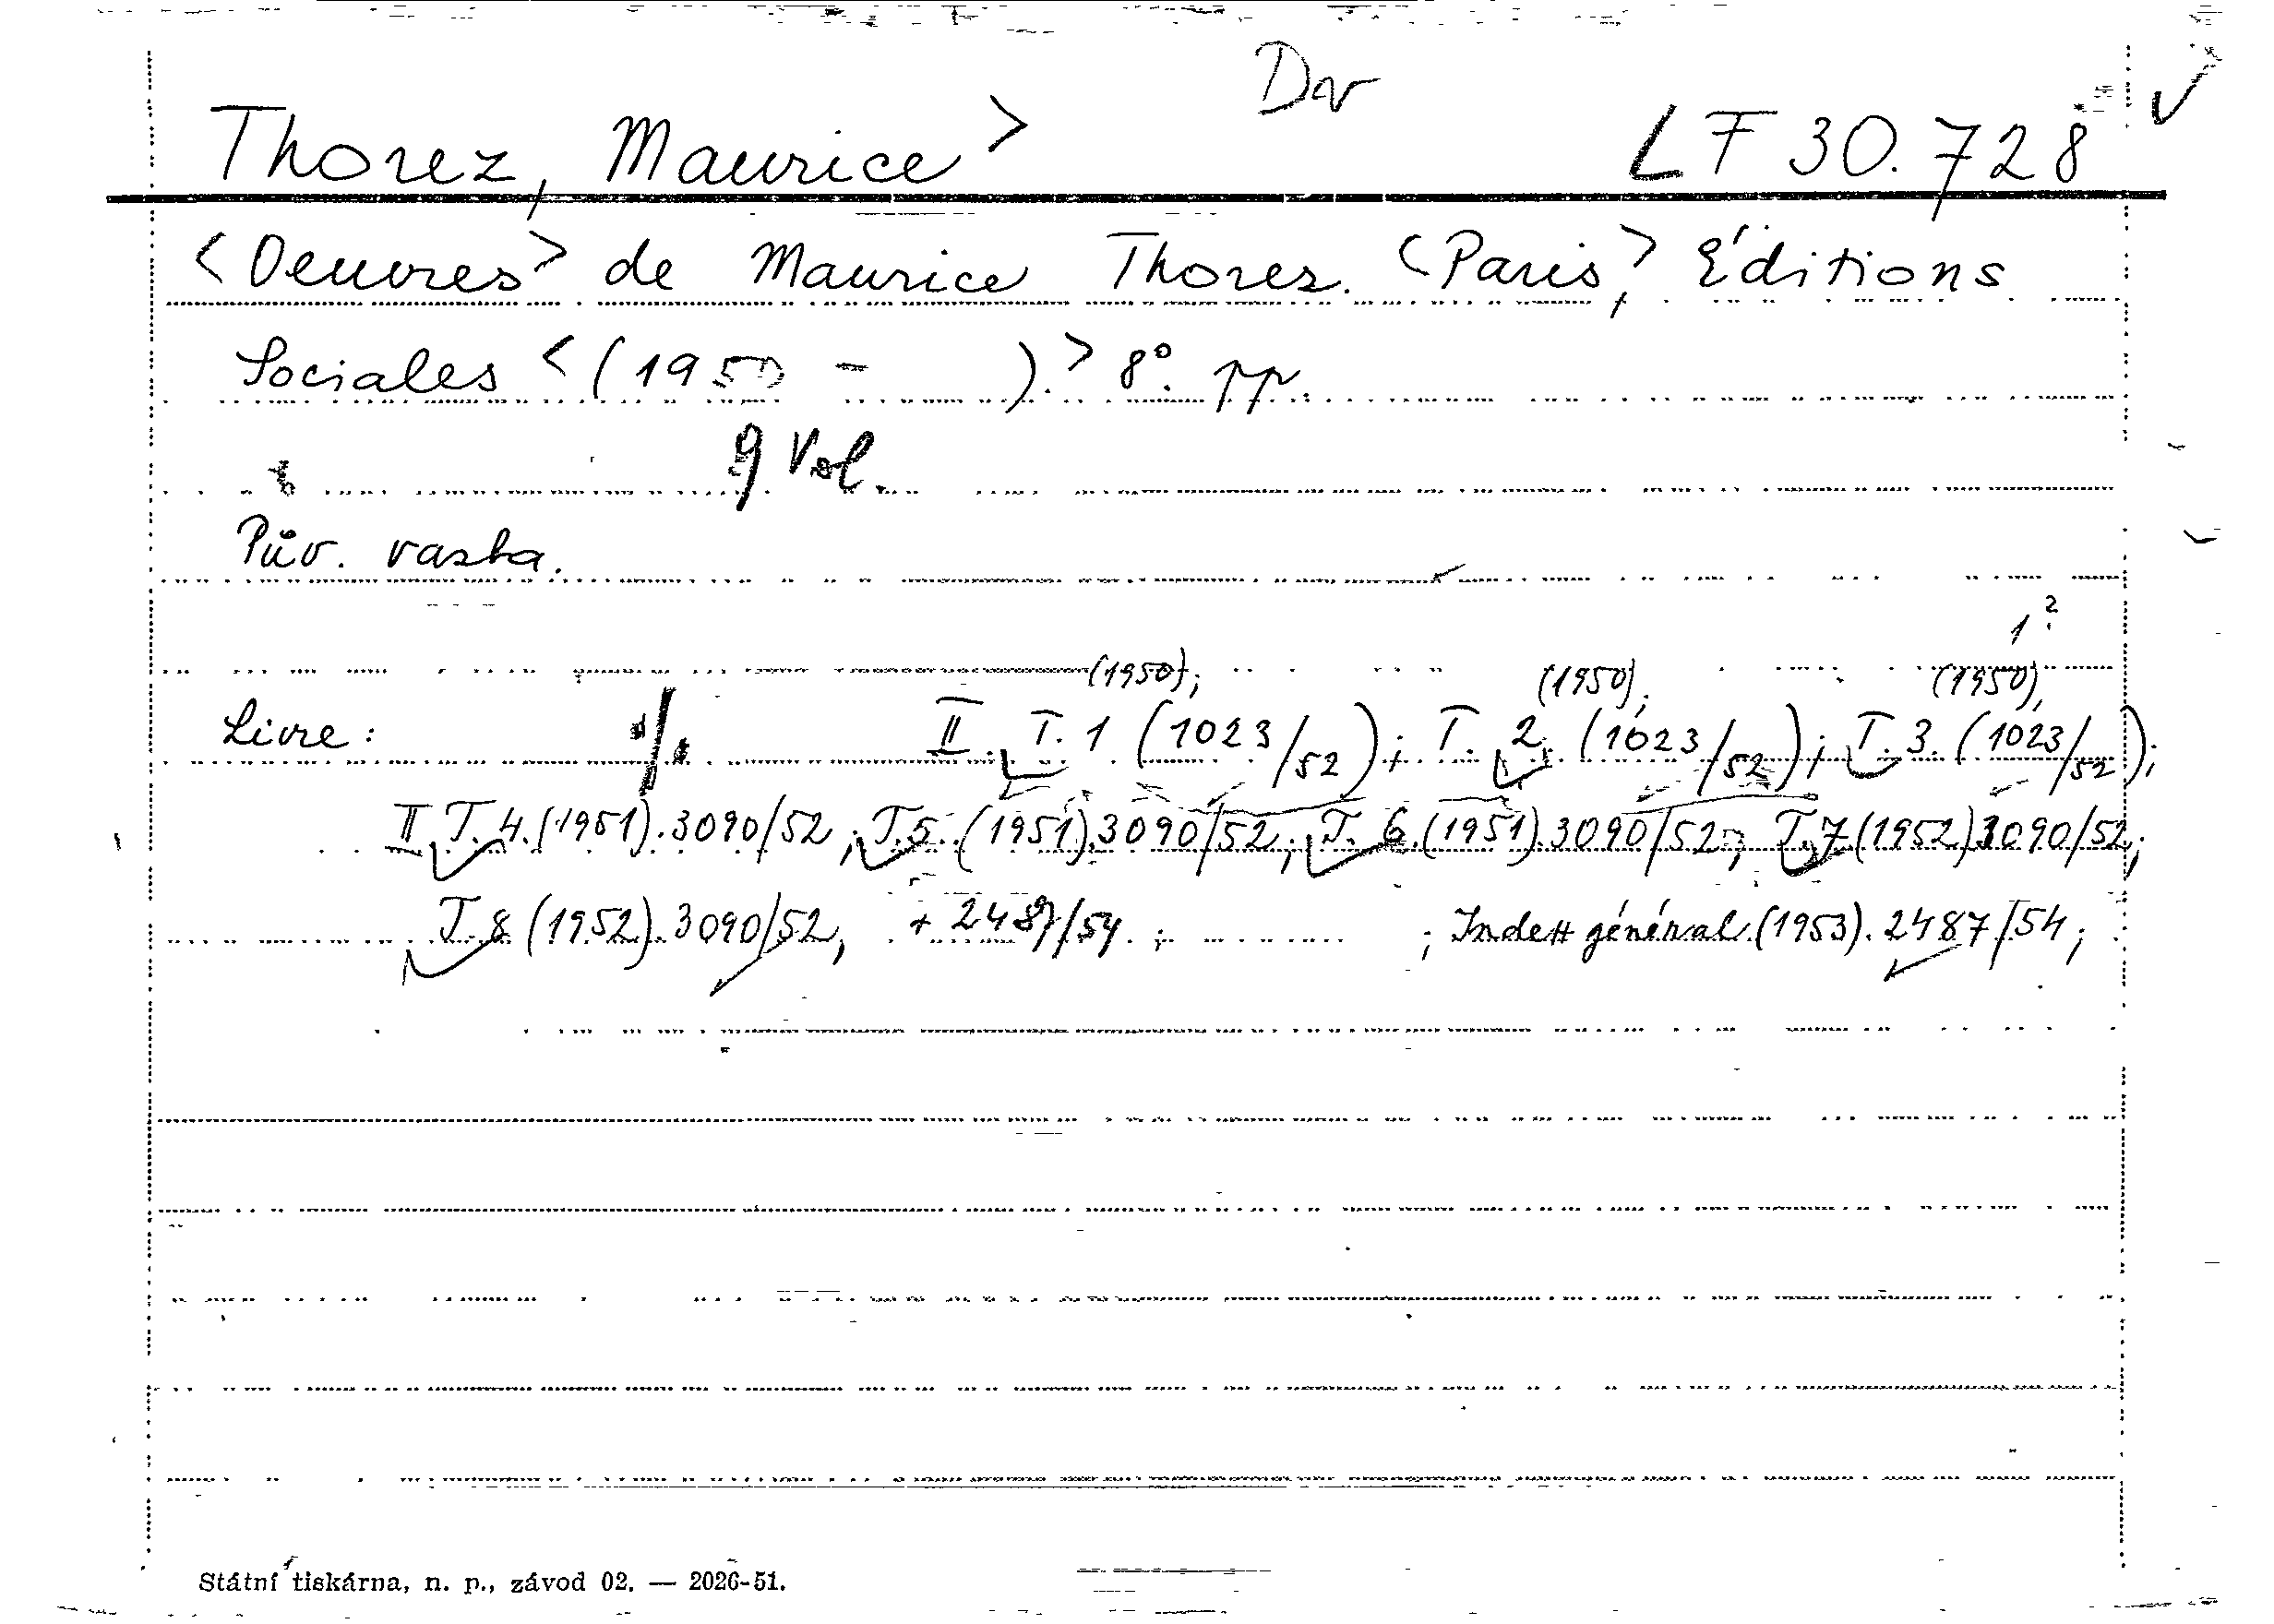 Dar
Thorez, Maurice> LF 30.728
<Oeuvres> de Maurice Thorez. <Paris,> Éditions
Sociales <(1950 -     ).> 8°. pp.
9 Vol.
Pův. vazba.
1?
(1950); (1950), (1950),
Livre: % II. T. 1 (1023/52); T. 2. (1023/52); T. 3. (1023/52);
II. T. 4. (1951). 3090/52; T. 5. (1951). 3090/52; T. 6. (1951). 3090/52; T. 7 (1952) 3090/52;
T. 8 (1952). 3090/52, + 2487/54. ; ; Index général. (1953). 2487/54;
Státní tiskárna, n. p., závod 02. — 2026-51.